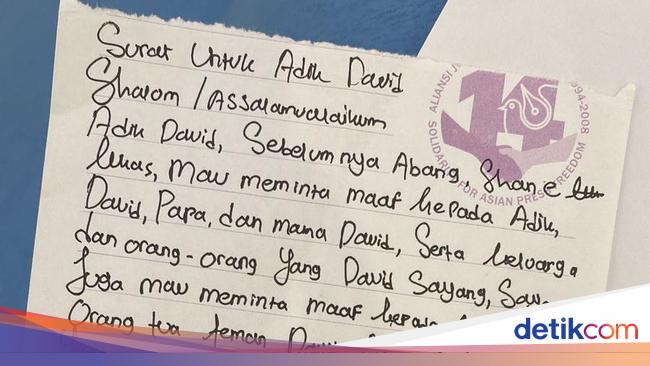 Surat Untuk Adik David
Shalom / Assalamualaikum
Adik David, Sebelumnya Abang, Shane
lukas, mau meminta maaf kepada Adik,
David, Papa, dan mama David, Serta keluarga
dan orang-orang Yang David Sayang, Saya
Juga mau meminta maaf kepada
Orang tua teman David
ALIANSI J 1994-2008
SOLIDARITY FOR ASIAN PRESS FREEDOM
14
detikcom